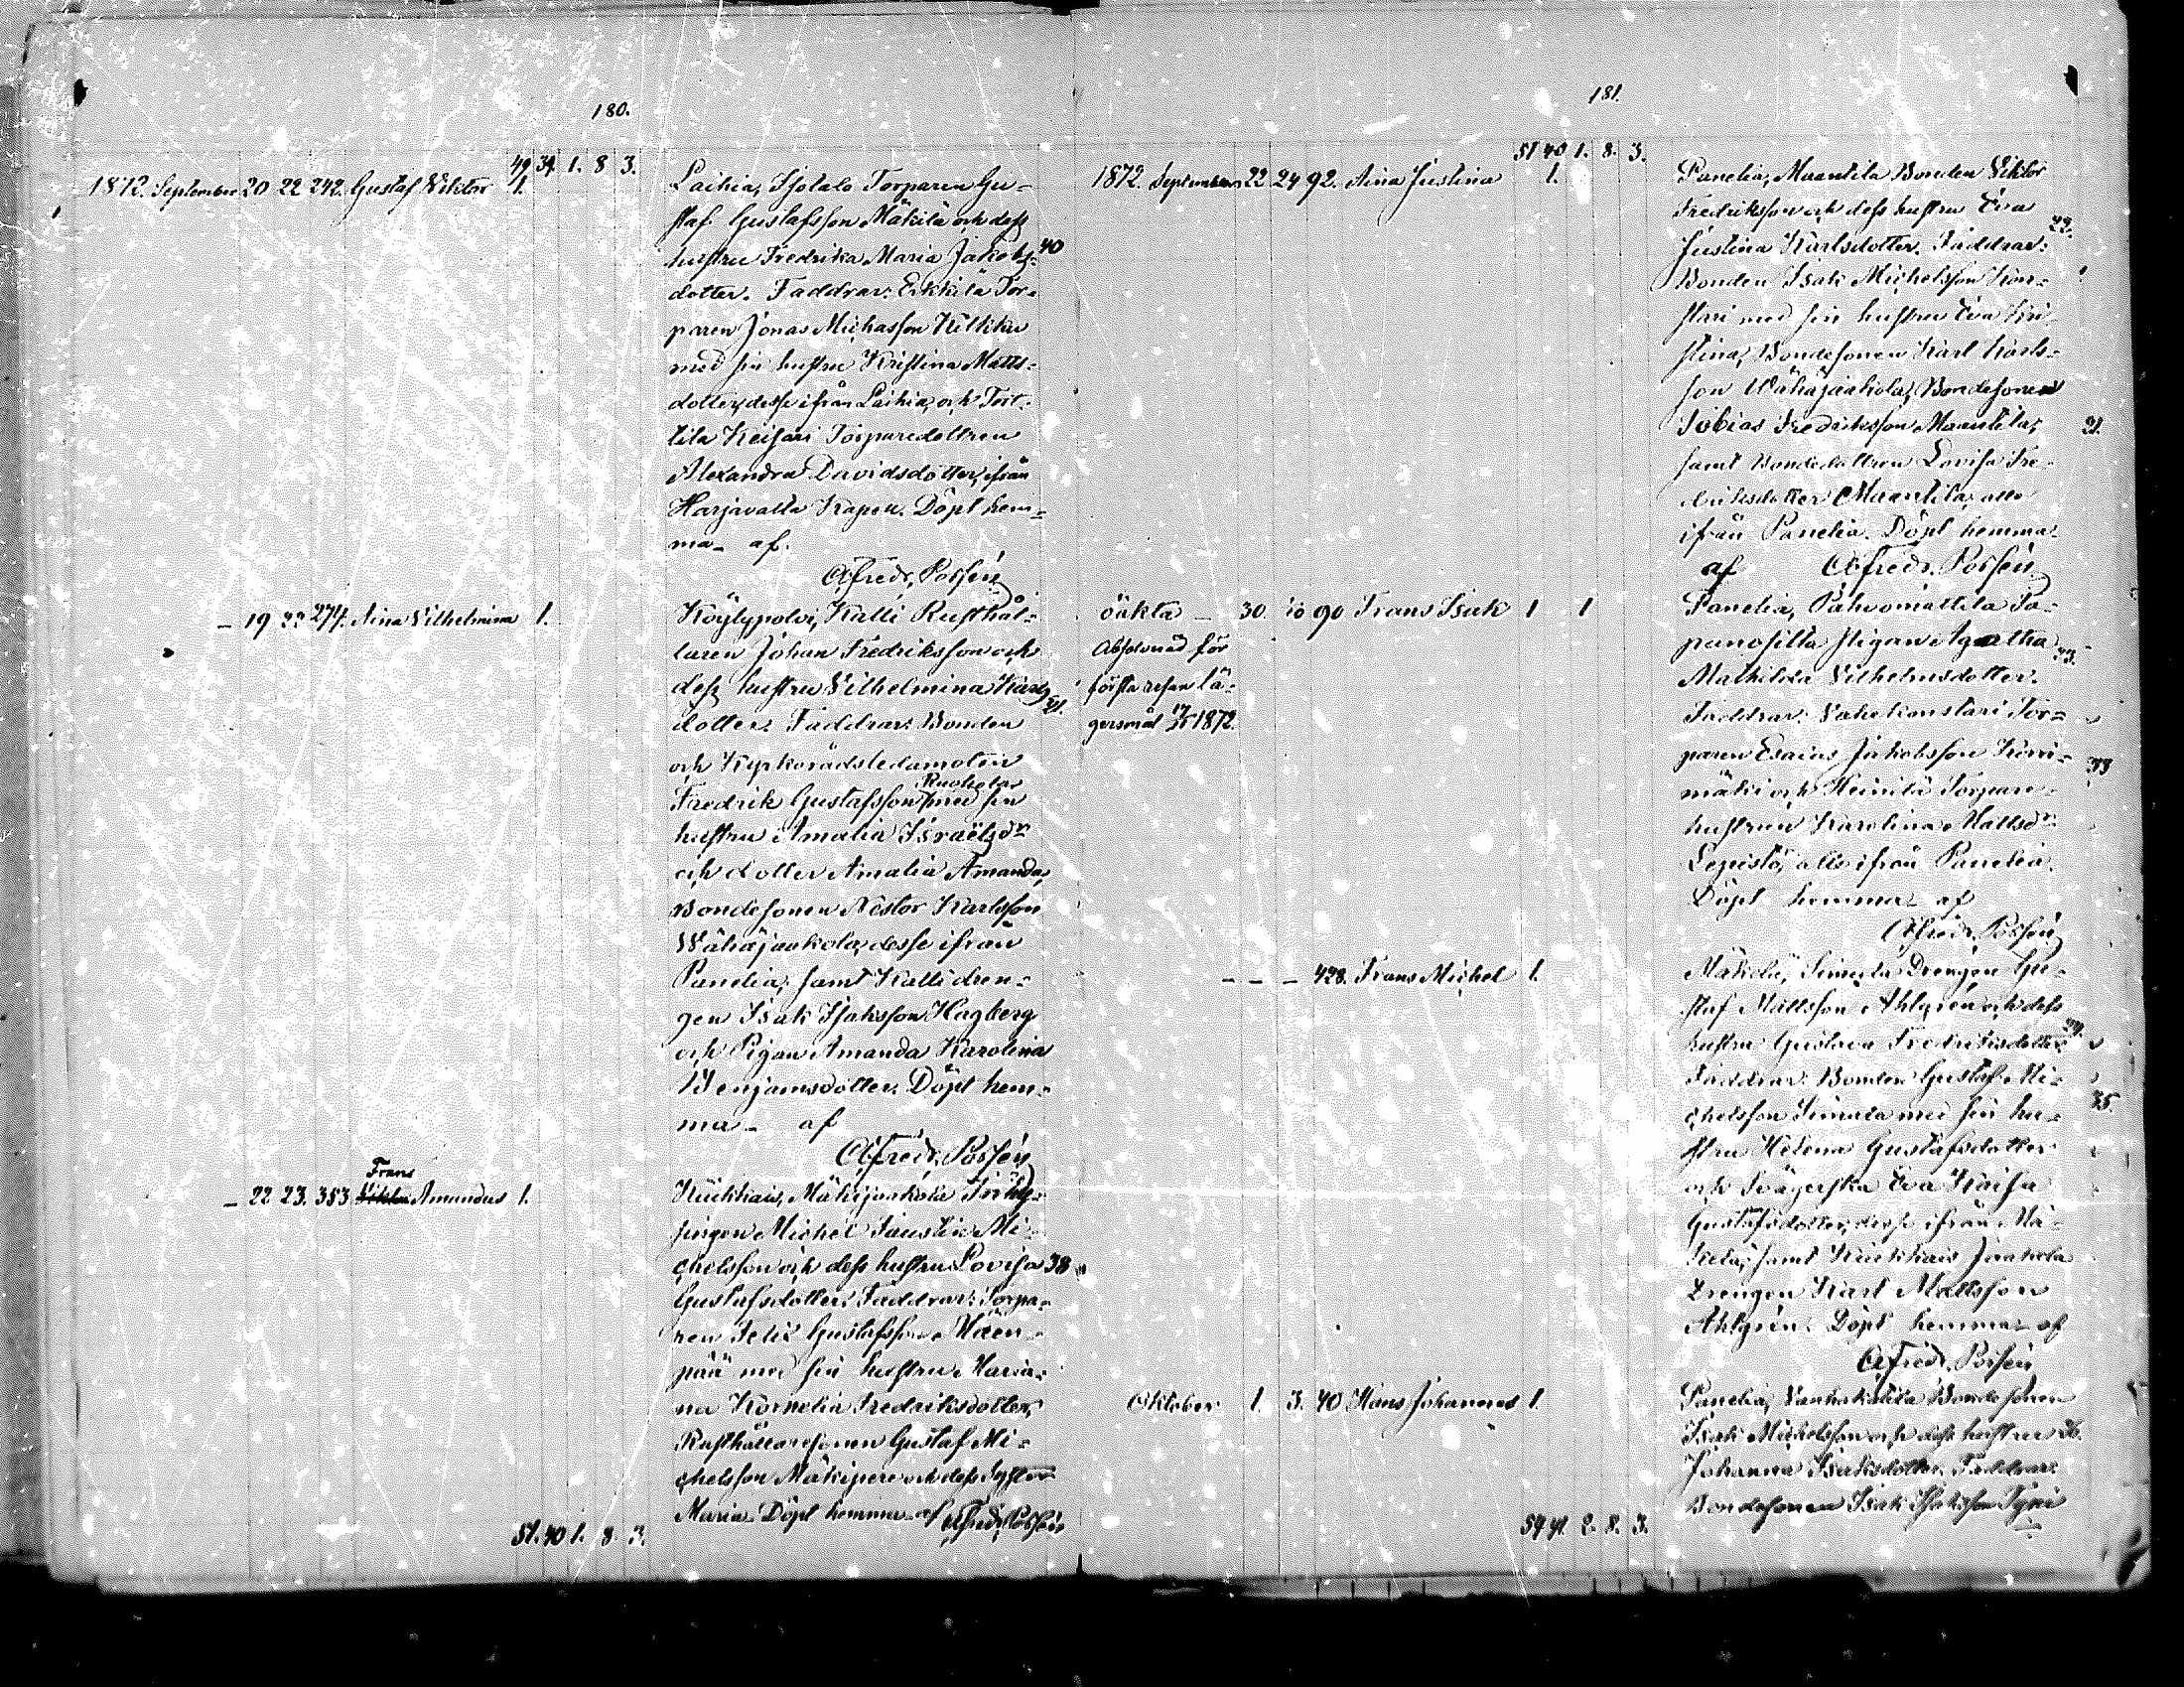 180.
49 39 1. 8 3.
1872. September 20 22 242. Gustaf Viktor 1.
Laihia, Isotalo Torparen Gu-
staf Gustafsson Mäkilä och dess
hustru Fredrika Maria Jakobs- 40
dotter. Faddrar: Erkkilä Tor-
paren Jonas Michasson Kilkku
med sin hustru Kristina Matts-
dotter, desse ifrån Laihia, och Tort-
tila Keisari Torparedottren
Alexandra Davidsdotter, ifrån
Harjavalta Kapell. Döpt hem-
ma af.
Alfredr. Posséu
- 19 22 274. Aina Vilhelmina 1.
Köylypolvi, Kalli Rusthål-
laren Johan Fredriksson och
dess hustru Vilhelmina Karls-
dotter. Faddrar: Bonden
och Kyrkorådsledamoten
Ruohola
Fredrik Gustafsson med sin
hustru Amalia Israelsdr
och dotter Amalia Amanda,
Bondesonen Nestor Karlsson
Wähäjaakola, desse ifrån
Panelia, samt Kalli dren-
gen Isak Isaksson Hagberg
och Pigan Amanda Karolina
Benjamsdotter. Döpt hem-
ma - af
Alfredr. Posséu
Frans
- 22 23. 353 Viktor Amandus 1.
Kiukkais, Mäkijaakola
Michel Faustin Mi-
chelsson och dess hustru Lovisa 38
Gustafsdotter. Faddrar: Torpa-
ren Felix Gustafsson Mäen-
pää med sin hustru Maria-
na Kornelia Fredriksdotter,
Rusthållaresonen Gustaf Mi-
chelsson Mäkipere och dess Syster
Maria. Döpt hemma af Alfredr. Posséu
51. 40 1. 8. 3.
181.
51 40 1. 8. 3.
1872. September 22 24 92. Aina Justina 1.
Panelia, Maantila Bonden Viktor
Fredriksson och dess hustru Eva
Justina Karlsdotter. Faddrar:
Bonden Isak Michelsson Kon-
stari med sin hustru Eva Kri-
stina, Bondesonen Karl Karls-
son Wähäjaakola, Bondesonen
Tobias Fredriksson Maantila,
samt Bondedottren Lovisa Fre-
driksdotter Maantila, alla
ifrån Panelia. Döpt hemma
af Alfredr. Posséu
oäkta - 30. 10 90 Frans Isak 1 1
Absolverad för
första resan lä-
gersmål 1872.
Panelia, Pahvomattila Pa-
panosilta Pigan Agatha
Mathilda Vilhelmsdotter.
Faddrar: Vähekonstari Tor-
paren Esaias Jakobsson Kierri- 33
mäki och Heinilä Torpare-
hustrun Karolina Mattsdr
Lepistö, alla ifrån Panelia.
Döpt hemma af
Alfredr. Posséu
- - - 428. Frans Michel 1.
Mäkelä, Simula Drengen Gu-
staf Mattsson Ahlgrén och dess
hustru Gustava Fredriksdotter.
Faddrar: Bonden Gustaf Mi-
chelsson Simula med sin hu- 35.
stru Helena Gustafsdotter
och Svägerska Eva Kaisa
Gustafsdotter, desse ifrån Mä-
kelä, samt Kiukkais Jaakola
Drengen Karl Mattsson
Ahlgrén. Döpt hemma af
Alfredr. Posséu
Oktober 1. 3. 40 Hans Johannes 1.
Panelia, Vanhakatila Bondesonen
Isak Michelsson och dess hustru
Johanna Isaksdotter. Faddrar:
Bondesonen Isak Isaksson Tyni
54 41. 2. 8. 3.